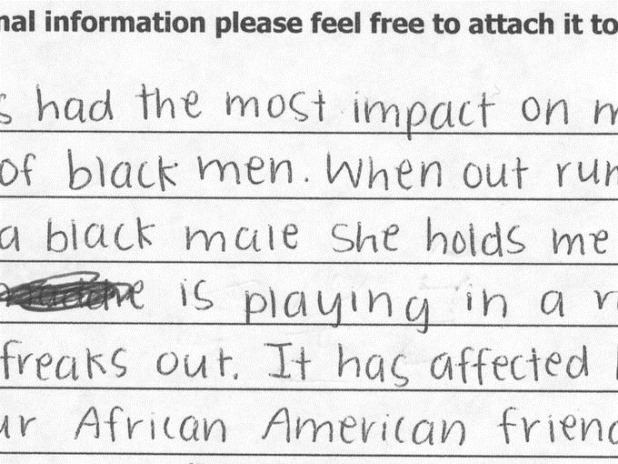 nal information please feel free to attach it to
s had the most impact on m
of black men. When out run
a black male she holds me
is playing in a r
freaks out. It has affected
ur African American friend